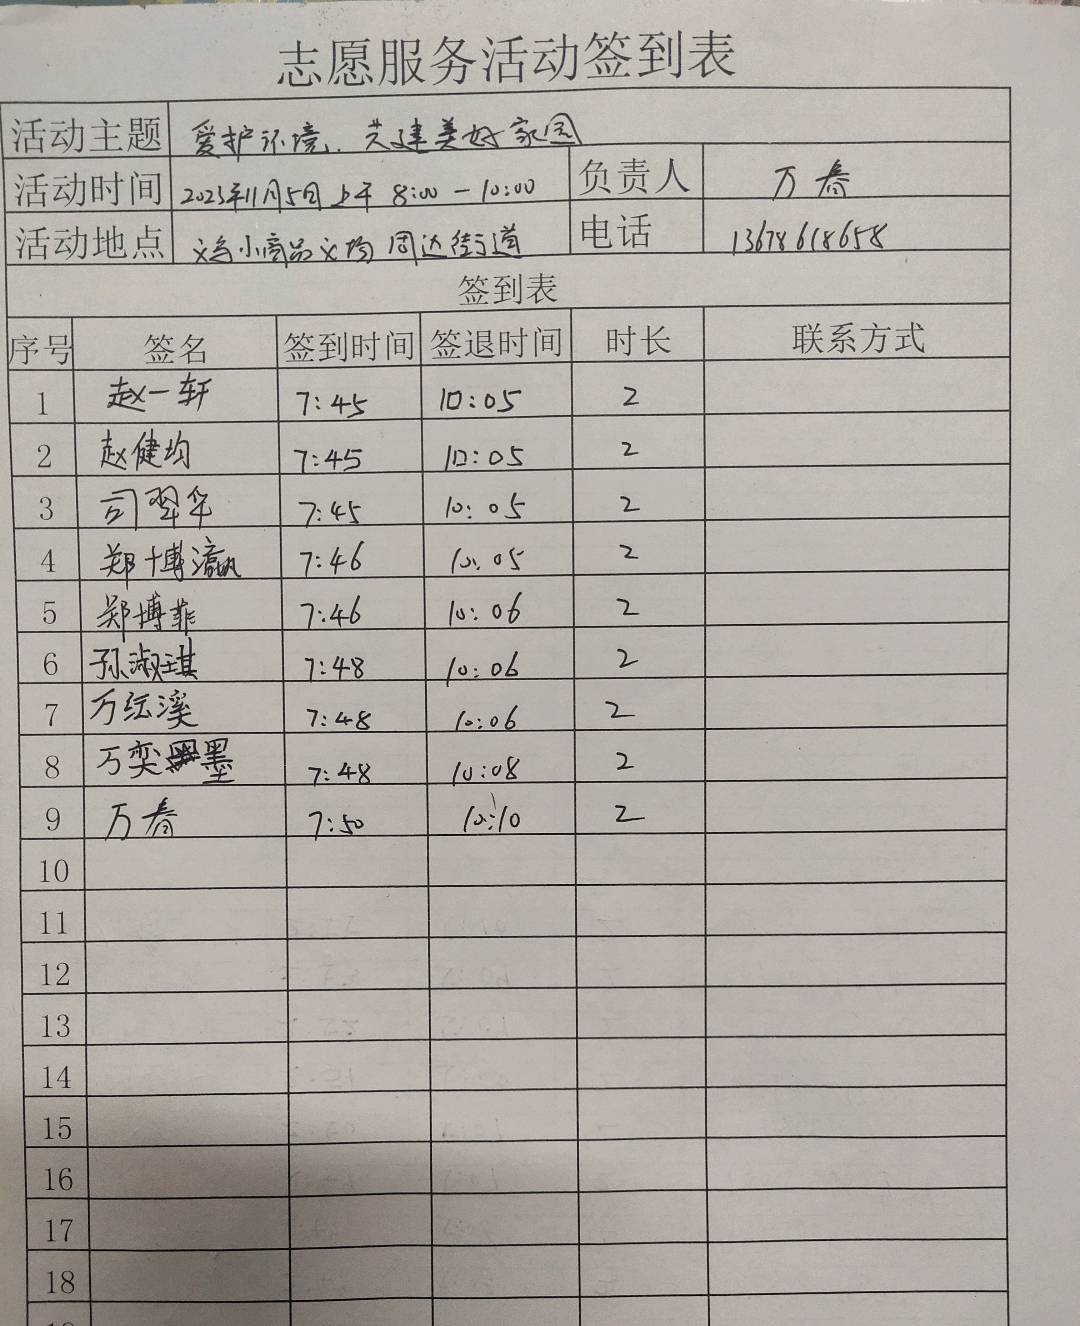 志愿服务活动签到表
活动主题 爱护环境、共建美好家园
活动时间 2023年11月5日上午 8:00 — 10:00 负责人 万春
活动地点 义乌小商品义均 周达街道 电话 13678618658
签到表
序号 签名 签到时间 签退时间 时长 联系方式
1 赵一轩 7:45 10:05 2
2 赵健均 7:45 10:05 2
3 司翠华 7:45 10:05 2
4 郑博瀛 7:46 10:05 2
5 郑博菲 7:46 10:06 2
6 孙淑琪 7:48 10:06 2
7 万纭溪 7:48 10:06 2
8 万奕墨 7:48 10:08 2
9 万春 7:50 10:10 2
10
11
12
13
14
15
16
17
18